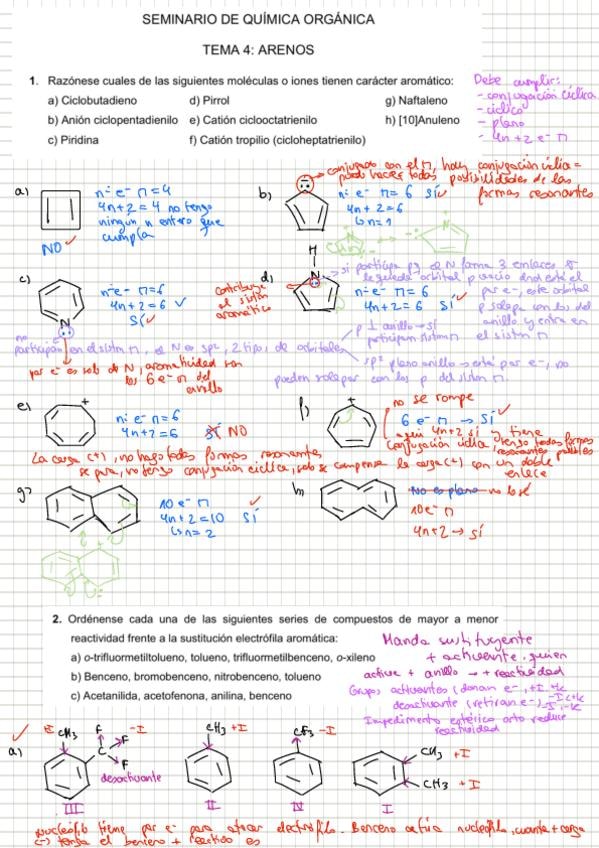 SEMINARIO DE QUÍMICA ORGÁNICA
TEMA 4: ARENOS
1. Razónese cuales de las siguientes moléculas o iones tienen carácter aromático:
a) Ciclobutadieno d) Pirrol g) Naftaleno
b) Anión ciclopentadienilo e) Catión ciclooctatrienilo h) [10]Anuleno
c) Piridina f) Catión tropilio (cicloheptatrienilo)
Debe cumplir:
- conjugación cíclica
- cíclico
- plano
- 4n+2 e- π
a)
n: e- π = 4
4n+2 = 4 no tengo
ningún n entero que
cumpla
NO
b)
conjugado con el π, hay conjugación cíclica =
puedo hacer todas posibilidades de las
formas resonantes
n: e- π = 6 Sí
4n+2 = 6
n=1
c)
n: e- π = 6
4n+2 = 6
Sí
N
no
participan en el sistm π, el N es sp2, 2 tipos de orbitales
par e- es solo de N, aromaticidad son
los 6 e- π del
anillo
contribuye
al sistm
aromático
d)
H
N
si participa pq el N forma 3 enlaces y
le queda orbital p vacío donde está el
par e-, este orbital
p solapa con los del
anillo y entra en
el sistm π
n: e- π = 6
4n+2 = 6 Sí
p ⊥ anillo → sí
participan sistm π
sp2 plano anillo → este par e-, no
pueden solapar con los p del sistm π.
e)
+
n: e- π = 6
4n+2 = 6 NO
La carga (+), no hago todas formas resonantes
se para, no tengo conjugación cíclica, solo se compensa la carga (+) con un doble
enlace
f)
+
no se rompe
6 e- π → Sí
4n+2 sí y tiene
conjugación cíclica tengo todas formas
resonantes posibles
g)
10 e- π
4n+2 = 10 Sí
n=2
h)
No es plano no lo sé
10 e- π
4n+2 → sí
2. Ordénense cada una de las siguientes series de compuestos de mayor a menor
reactividad frente a la sustitución electrófila aromática:
a) o-trifluormetiltolueno, tolueno, trifluormetilbenceno, o-xileno
b) Benceno, bromobenceno, nitrobenceno, tolueno
c) Acetanilida, acetofenona, anilina, benceno
Manda sustituyente
+ activante, quien
active + anillo → + reactividad
Grupos activantes (donan e-, +I, +K
desactivante (retiran e-) -I, -K
Impedimento estérico orto reduce
reactividad
a)
CH3 F -I
F
C
F
desactivante
III
CH3 +I
II
CF3 -I
IV
CH3 +I
CH3 +I
I
Nucleófilo tiene par e- para atacar electrófilo. Benceno actúa nucleófilo, cuanta + carga
(-) tenga el benceno + reactivo es